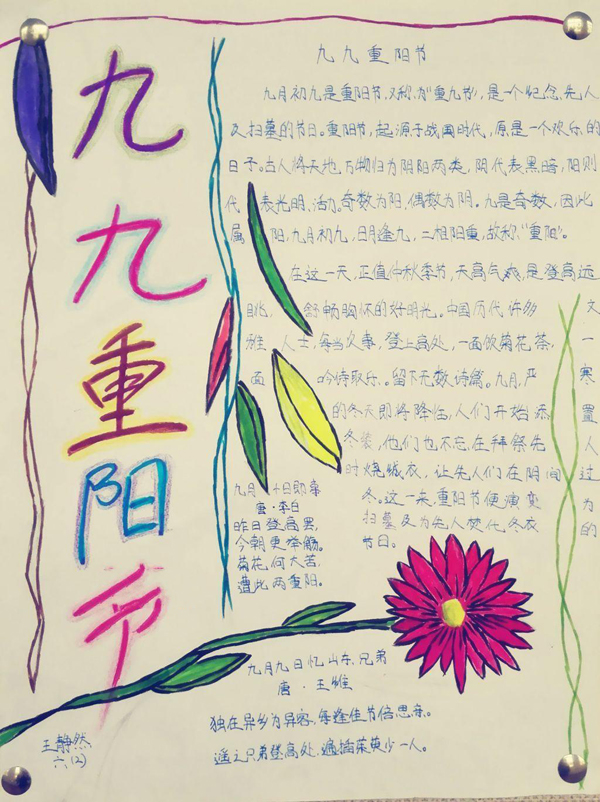 九九重阳节
九九重阳节
九月初九是重阳节,又称为"重九节",是一个纪念先人
及扫墓的节日。重阳节,起源于战国时代,原是一个欢乐的
日子。古人将天地,万物归为阴阳两类,阴代表黑暗,阳则
代表光明,活力。奇数为阳,偶数为阴。九是奇数,因此
属阳,九月初九,日月逢九,二相阳重,故称"重阳"。
在这一天,正值仲秋季节,天高气爽,是登高远
眺,舒畅胸怀的好时光。中国历代许多文
雅人士,每当次事,登上高处,一面饮菊花茶,一
面吟诗取乐。留下无数诗篇。九月,严寒
的冬天即将降临,人们开始添置
冬装,他们也不忘在拜祭先人
时烧纸衣,让先人们在阴间过
冬。这一来,重阳节便演变为
扫墓及为先人焚化冬衣的
节日。
九月十日即事
唐·李白
昨日登高罢,
今朝更举觞。
菊花何大苦,
遭此两重阳。
九月九日忆山东兄弟
唐·王维
独在异乡为异客,每逢佳节倍思亲。
遥之兄弟登高处,遍插茱萸少一人。
王静然
六(2)